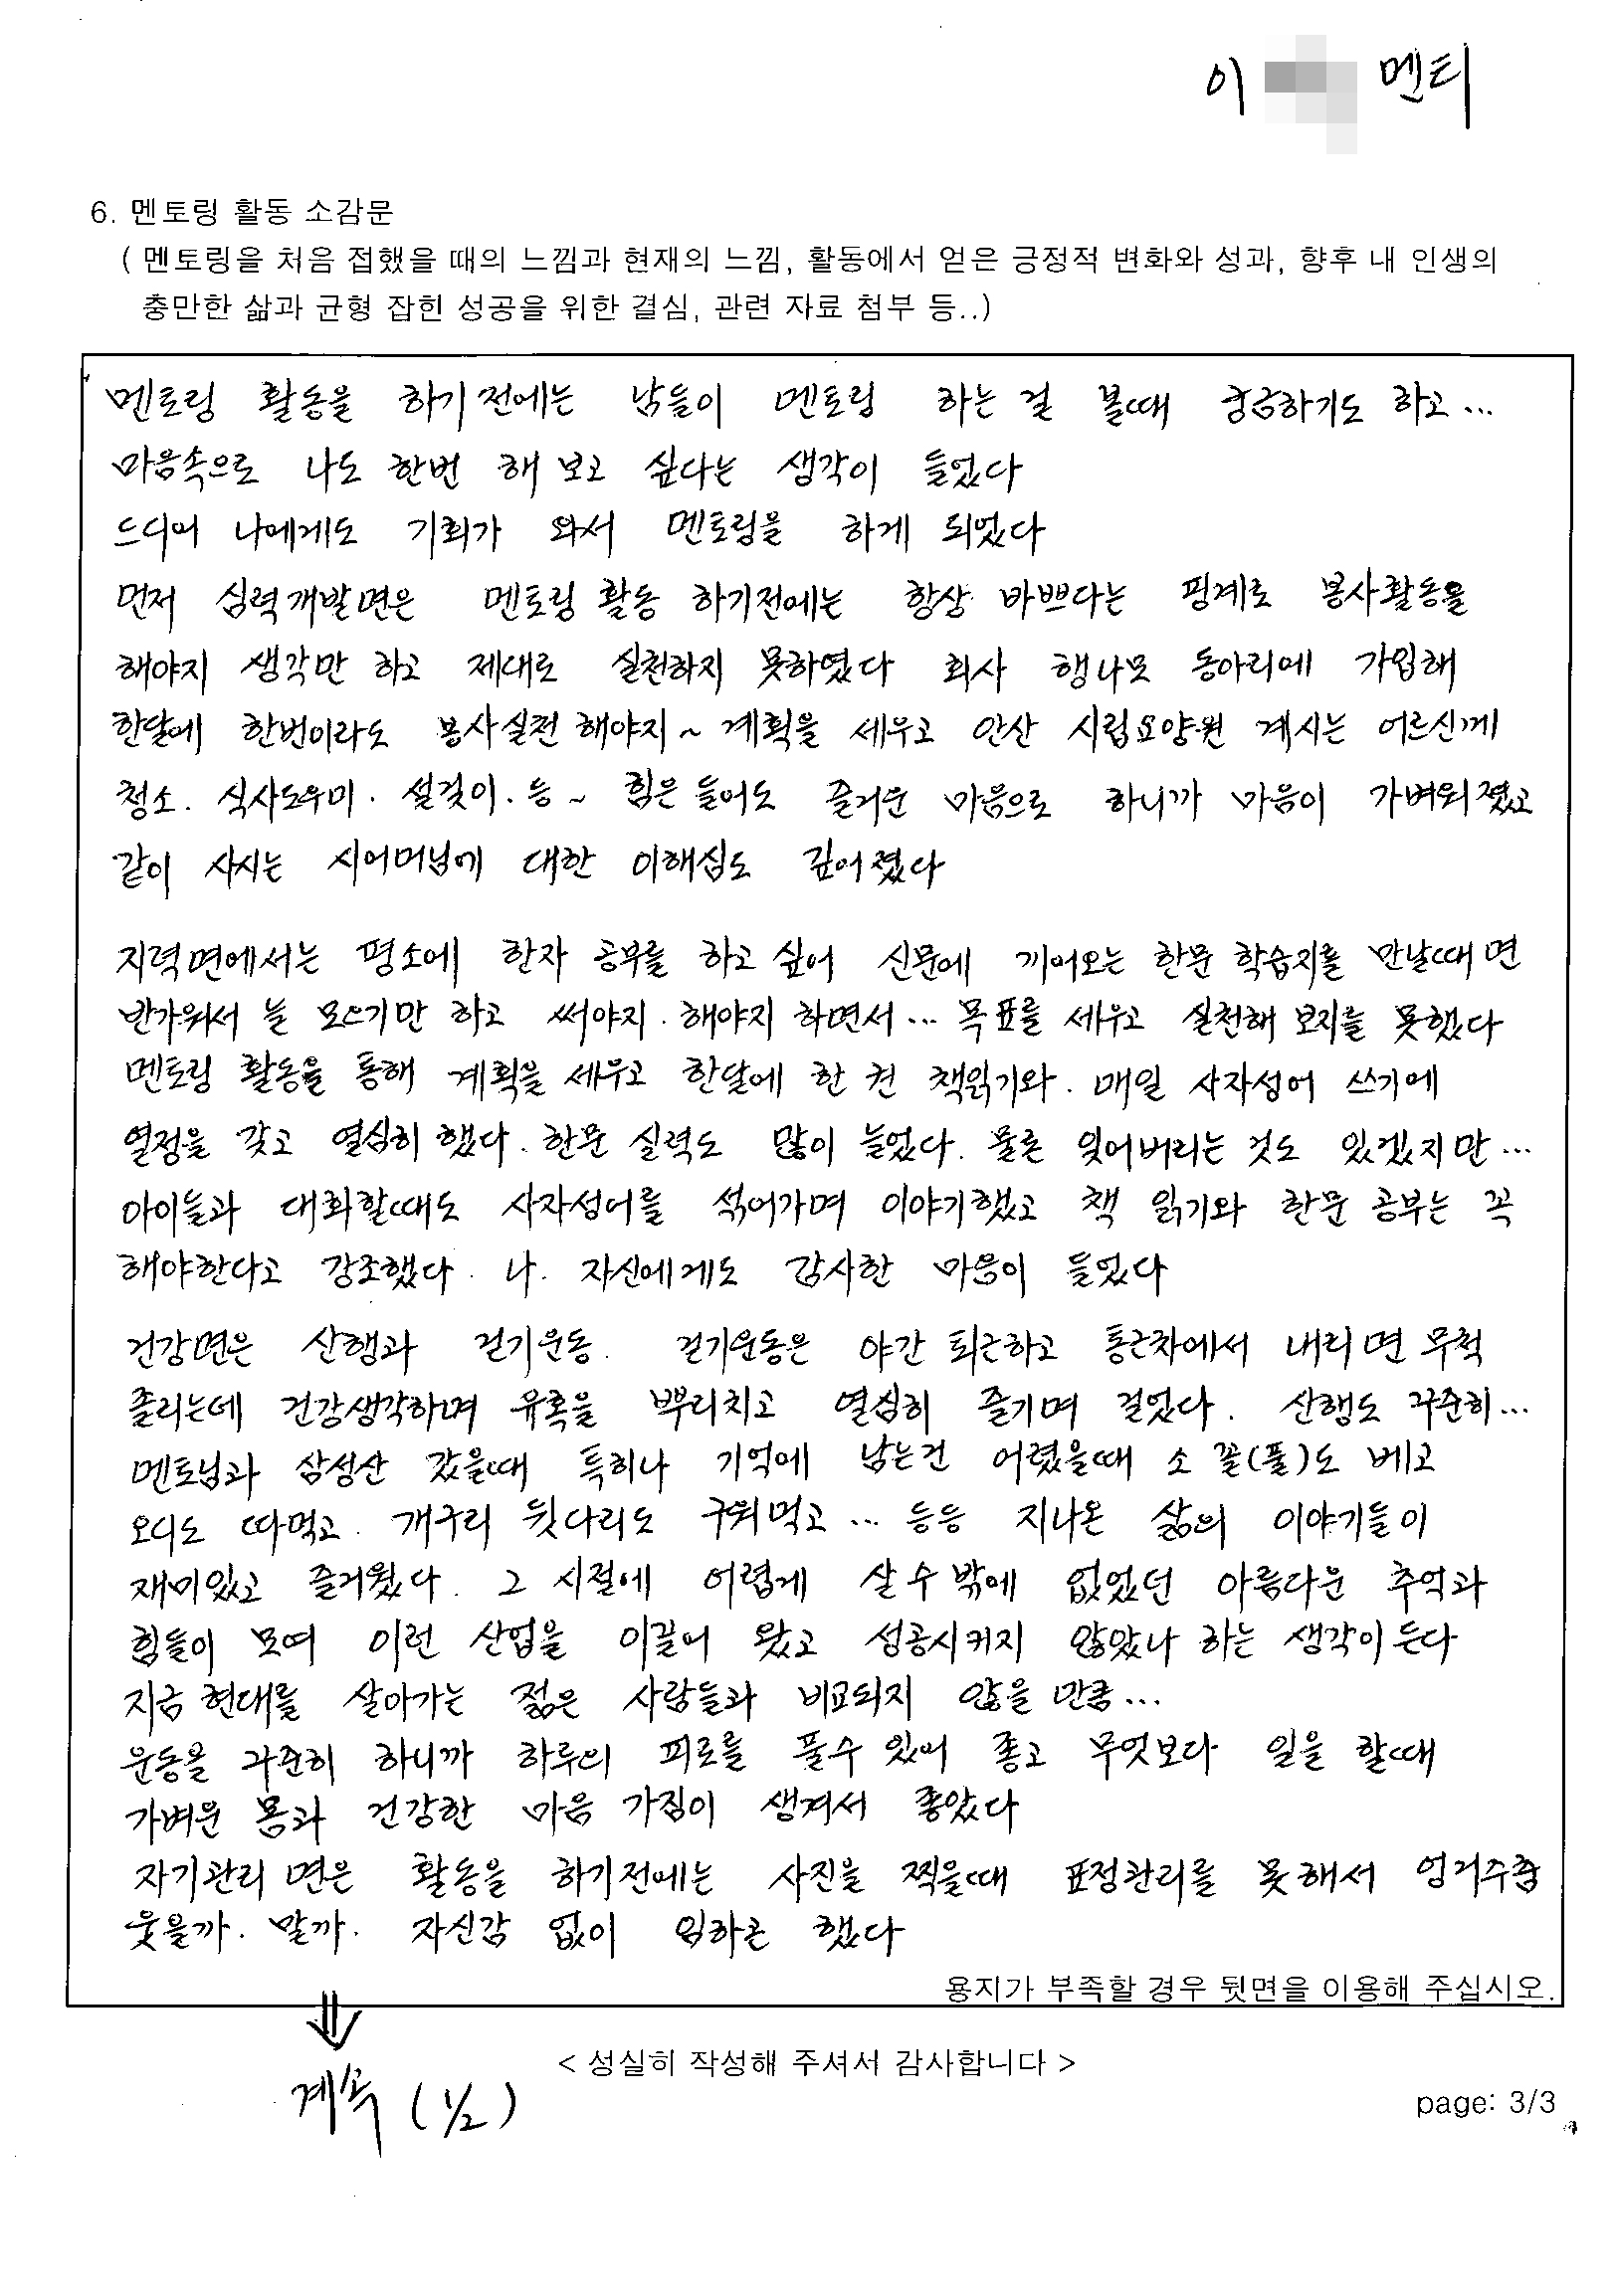 이 멘티
6. 멘토링 활동 소감문
( 멘토링을 처음 접했을 때의 느낌과 현재의 느낌, 활동에서 얻은 긍정적 변화와 성과, 향후 내 인생의
충만한 삶과 균형 잡힌 성공을 위한 결심, 관련 자료 첨부 등..)
멘토링 활동을 하기전에는 남들이 멘토링 하는 걸 볼때 궁금하기도 하고...
마음속으로 나도 한번 해 보고 싶다는 생각이 들었다
드디어 나에게도 기회가 와서 멘토링을 하게 되었다
먼저 심력개발면은 멘토링 활동 하기전에는 항상 바쁘다는 핑계로 봉사활동을
해야지 생각만 하고 제대로 실천하지 못하였다 회사 행나모 동아리에 가입해
한달에 한번이라도 봉사실천 해야지~ 계획을 세우고 안산 시립요양원 계시는 어르신께
청소. 식사도우미. 설겆이. 등~ 힘은 들어도 즐거운 마음으로 하니까 마음이 가벼워졌고
같이 사시는 시어머님에 대한 이해심도 깊어졌다
지력면에서는 평소에 한자 공부를 하고 싶어 신문에 끼어오는 한문 학습지를 만날때면
반가워서 늘 모으기만 하고 써야지. 해야지 하면서... 목표를 세우고 실천해 보지를 못했다
멘토링 활동을 통해 계획을 세우고 한달에 한 권 책읽기와. 매일 사자성어 쓰기에
열정을 갖고 열심히 했다. 한문 실력도 많이 늘었다. 물론 잊어버리는 것도 있겠지만...
아이들과 대화할때도 사자성어를 섞어가며 이야기했고 책 읽기와 한문 공부는 꼭
해야한다고 강조했다. 나. 자신에게도 감사한 마음이 들었다
건강면은 산행과 걷기운동. 걷기운동은 야간 퇴근하고 통근차에서 내리면 무척
졸리는데 건강생각하며 유혹을 뿌리치고 열심히 즐기며 걸었다. 산행도 꾸준히...
멘토님과 삼성산 갔을때 특히나 기억에 남는건 어렸을때 소 꼴(풀)도 베고
오디도 따먹고. 개구리 뒷다리도 구워먹고... 등등 지나온 삶의 이야기들이
재미있고 즐거웠다. 그 시절에 어렵게 살 수 밖에 없었던 아름다운 추억과
힘들이 모여 이런 산업을 이끌어 왔고 성공시키지 않았나 하는 생각이 든다
지금 현대를 살아가는 젊은 사람들과 비교되지 않을 만큼...
운동을 꾸준히 하니까 하루의 피로를 풀수 있어 좋고 무엇보다 일을 할때
가벼운 몸과 건강한 마음 가짐이 생겨서 좋았다
자기관리 면은 활동을 하기전에는 사진을 찍을때 표정관리를 못해서 엉거주춤
웃을까. 말까. 자신감 없이 임하곤 했다
용지가 부족할 경우 뒷면을 이용해 주십시오.
⇓
< 성실히 작성해 주셔서 감사합니다 >
계속 (1/2)
page: 3/3